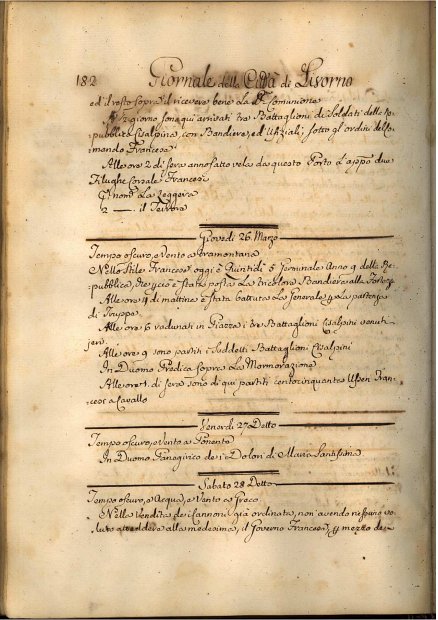 182 Giornale della Città di Livorno
ed il resto sopra il ricevere bene la SS. Comunione
giorno sono qui arrivati tre Battaglioni di Soldati della Re-
pubblica Cisalpina, con Bandiera, ed Ufiziali, sotto gl'ordini del Co-
mando Francese
Alle ore 2 di sera anno fatto vela da questo Porto l'appo due
Corsale Francesi
nom. La Leggera
2 —— il
Giovedì 26 Marzo
Tempo oscuro, e Vento a Tramontana
Nello Stile Francese oggi è Quintidì 5 Germinale Anno 9 della Re-
pubblica, e stata posta la tricolore Bandiera alla Fortezza
Alle ore 4 di mattina è stata battuta la Generale p la partenza
di Truppa
Alle ore 6 radunati in Piazza i tre Battaglioni Cisalpini venuti
jeri
Alle ore 9 sono partiti i suddetti Battaglioni Cisalpini
In Duomo Predica sopra la Mormorazione
Alle ore 1. di sera sono di qui partiti centocinquanta Ussari Fran-
cesi a Cavallo
Venerdì 27 Detto
Tempo oscuro, e Vento a Ponente
In Duomo Panegirico de i Dolori di Maria Santissima
Sabato 28 Detto
Tempo oscuro, e Acqua, e Vento a Greco
Nella Vendita de i Cannoni già ordinata, non avendo nessuno vo-
luto attendere alla medesima, il Governo Francese, p mezzo de-